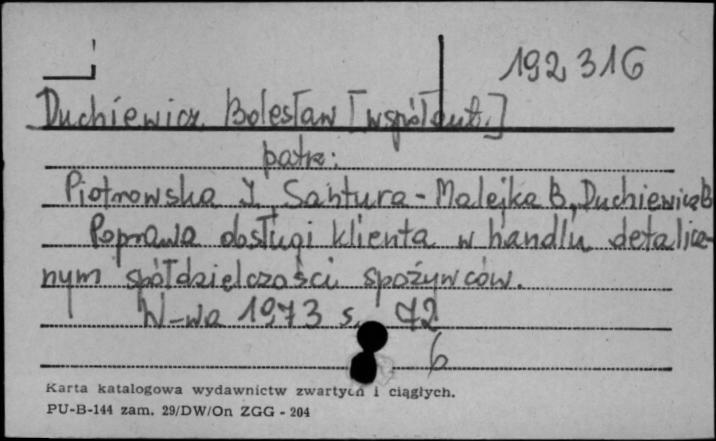 192316
Duchiewicz Bolesław [współaut.]
patrz:
Piotrowska I., Santura-Malejka B., Duchiewicz B
Poprawa obsługi klienta w handlu detalicz-
nym spółdzielczości spożywców.
W-wa 1973 s. 72
6
Karta katalogowa wydawnictw zwartych i ciągłych.
PU-B-144 zam. 29/DW/On ZGG - 204